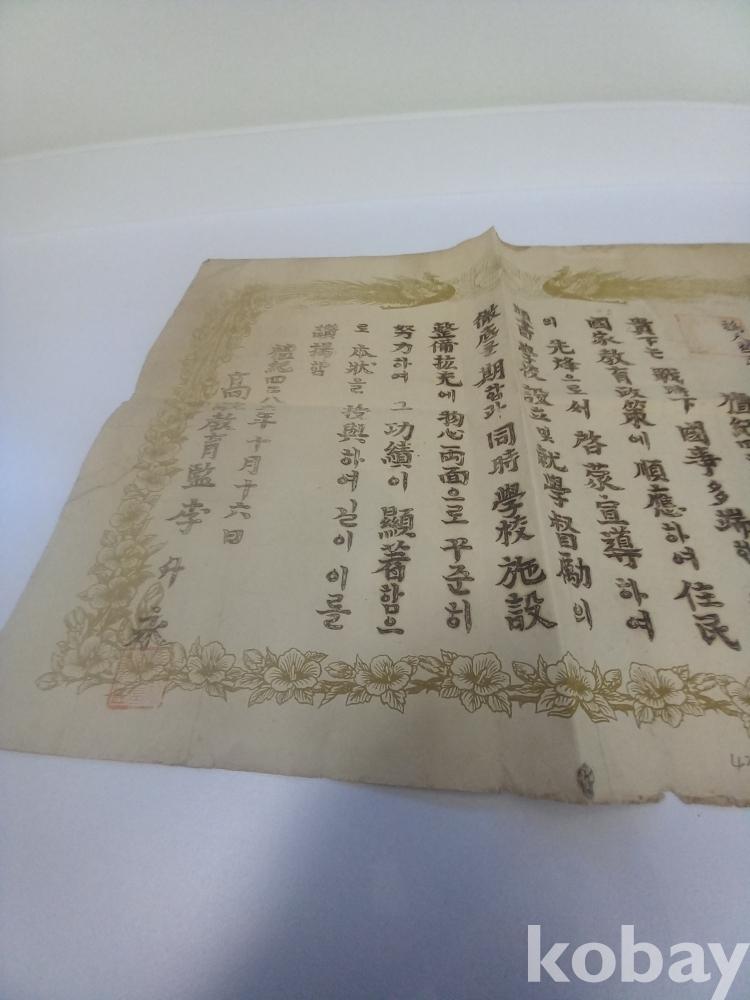 檀紀四二
貴下는 戰時下 國事多端
國家敎育政策에 順應하여 住民
의 先烽으로서 啓蒙宣導하여
學校設立 및 就學督勵의
徹底를 期함과 同時 學校 施設
整備拡充에 物心両面으로 꾸준히
努力하여 그 功績이 顯著함으
로 本狀을 授與하여 길이 이를
讚揚함
檀紀四二八 年 十月十六日
高 敎育監 李 升
kobay